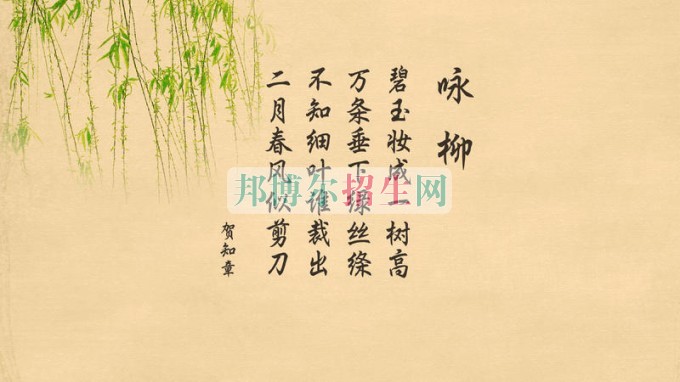 咏柳
碧玉妆成一树高
万条垂下绿丝绦
不知细叶谁裁出
二月春风似剪刀
贺知章
邦博尔招生网